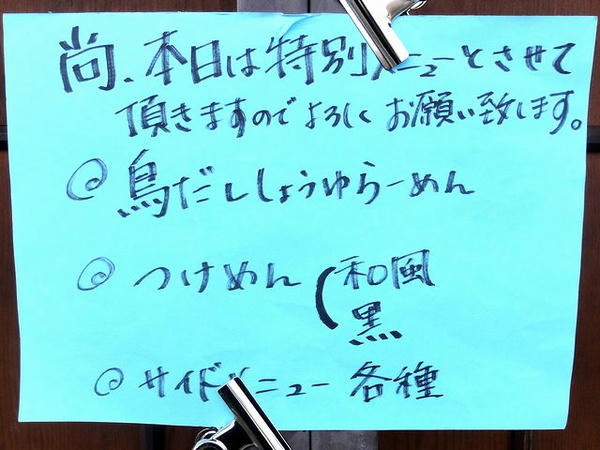 尚、本日は特別メニューとさせて
頂きますのでよろしくお願い致します。
◎ 鳥だししょうゆらーめん
◎ つけめん (和風
黒
◎ サイドメニュー 各種